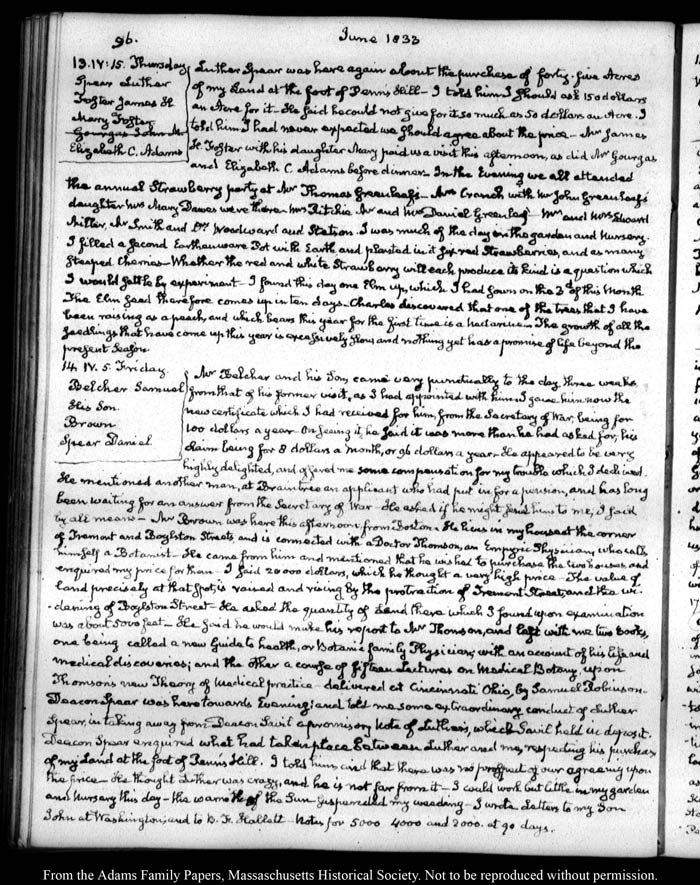 96.
June 1833
13. IV:15. Thursday
Spear Luther
Foster James H
Mary Foster
Gourgas John M.
Elizabeth C. Adams
Luther Spear was here again about the purchase of forty-five Acres
of my Land at the foot of Penn's Hill — I told him I should ask 150 dollars
an Acre for it — He said he could not give for it so much as 50 dollars an Acre. I
told him I had never expected we should agree about the price — Mr James
H. Foster with his daughter Mary paid us a visit this afternoon, as did Mr Gourgas
and Elizabeth C. Adams before dinner — In the Evening we all attended
the annual Strawberry party at Mr Thomas Greenleaf's — Mrs Cranch with Mr John Greenleaf's
daughter Mrs Mary Dawes were there — Mrs Ritchie Mr and Mrs Daniel Greenleaf Wm and Mrs Edward
Miller, Mr Smith and Drs Woodward and Station. I was much of the day in the garden and Nursery.
I filled a second Earthenware Pot with Earth and planted in it six red Strawberries, and as many
steeped Cherries — Whether the red and white Strawberry will each produce its kind is a question which
I would settle by experiment — I found this day one Elm up, which I had sown on the 3d of this Month
The Elm seed therefore comes up in ten days — Charles discovered that one of the trees that I have
been raising as a peach, and which bears this year for the first time is a Nectarine — The growth of all the
seedlings that have come up this year is excessively slow, and nothing yet has a promise of life beyond the
present Season.
14. IV. 5. Friday.
Belcher Samuel
His Son
Brown
Spear Daniel.
Mr Belcher and his Son, came very punctually to the day three weeks
from that of his former visit, as I had appointed with him. I gave him now the
new certificate which I had received for him, from the Secretary of War, being for
100 dollars a year — On seeing it, he said it was more than he had asked for, his
claim being for 8 dollars a month, or 96 dollars a year — He appeared to be very
highly delighted, and offered me some compensation for my trouble which I declined.
He mentioned another man, at Braintree an applicant who had put in for a pension, and has long
been waiting for an answer from the Secretary of War — He asked if he might send him to me, I said
by all means — Mr Brown was here this afternoon, from Boston — He lives in my house at the corner
of Tremont and Boylston Streets, and is connected with a Doctor Thomson, an Empyric Physician, who calls
himself a Botanist — He came from him and mentioned that he wished to purchase the two houses and
enquired my price for them — I said 20000 dollars, which he thought a very high price — The value of
land precisely at that spot, is raised and rising by the protraction of Tremont Street, and the wi-
dening of Boylston Street — He asked the quantity of Land there which I found upon examination
was about 5000 feet — He said he would make his report to Mr Thomson, and left with me two books,
one being called a new Guide to health, or Botanic family Physician, with an account of his life and
medical discoveries; and the other a course of fifteen Lectures on Medical Botany, upon
Thomson's new Theory of Medical practice — delivered at Cincinnati Ohio, by Samuel Robinson —
Deacon Spear was here towards Evening; and told me some extraordinary conduct of Luther
Spear, in taking away from Deacon Savil a promissory Note of Luther's, which Savil held in deposit.
Deacon Spear enquired what had taken place between Luther and me, respecting his purchase
of my Land at the foot of Penn's Hill. I told him; and that there was no prospect of our agreeing upon
the price — He thought Luther was crazy, and he is not far from it — I could work but little in my garden
and Nursery this day — the warmth of the Sun suspended my weeding — I wrote Letters to my Son
John at Washington; and to B. F. Hallett — Notes for 5000 4000 and 2000. at 90 days.
From the Adams Family Papers, Massachusetts Historical Society. Not to be reproduced without permission.